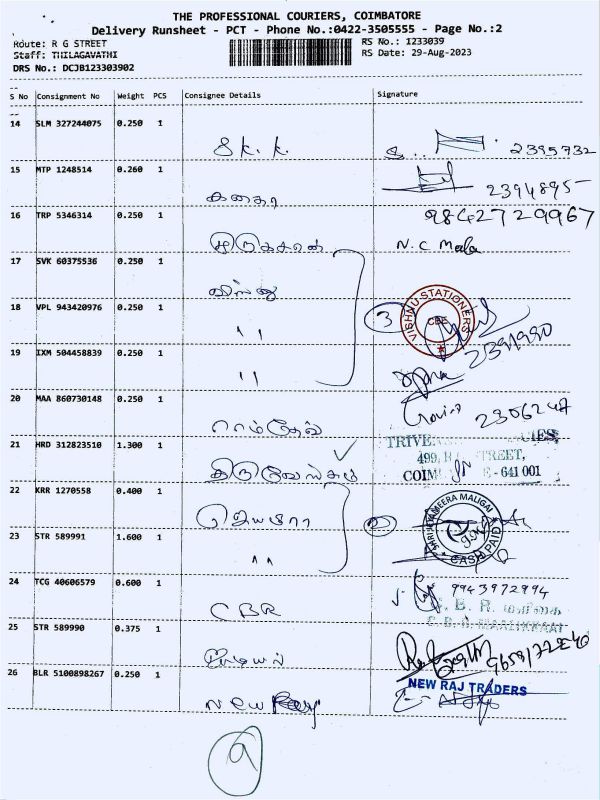 THE PROFESSIONAL COURIERS, COIMBATORE
Delivery Runsheet - PCT - Phone No.:0422-3505555 - Page No.:2
Route: R G STREET RS No.: 1233039
Staff: THILAGAVATHI RS Date: 29-Aug-2023
DRS No.: DCJB123303902
S No Consignment No Weight PCS Consignee Details Signature
14 SLM 327244075 0.250 1
S.K.K. 2395732
15 MTP 1248514 0.260 1
2394895
16 TRP 5346314 0.250 1 9842729967
முருகசரண் N.C Mala
17 SVK 60375536 0.250 1
விஷ்ணு
18 VPL 943420976 0.250 1
" 3 VISHNU STATIONERS CBE
19 IXM 504458839 0.250 1 2391990
"
20 MAA 860730148 0.250 1
ராம்தேவ் 2306247
21 HRD 312823510 1.300 1 499, STREET,
COIM E - 641 001
22 KRR 1270558 0.400 1
ஜெயமீரா 2 MEERA MALIGAI CASH PAID
23 STR 589991 1.600 1
"
24 TCG 40606579 0.600 1 9943972994
CBR C. B. R.
25 STR 589990 0.375 1
26 BLR 5100898267 0.250 1 NEW RAJ TRADERS
New Raj
9